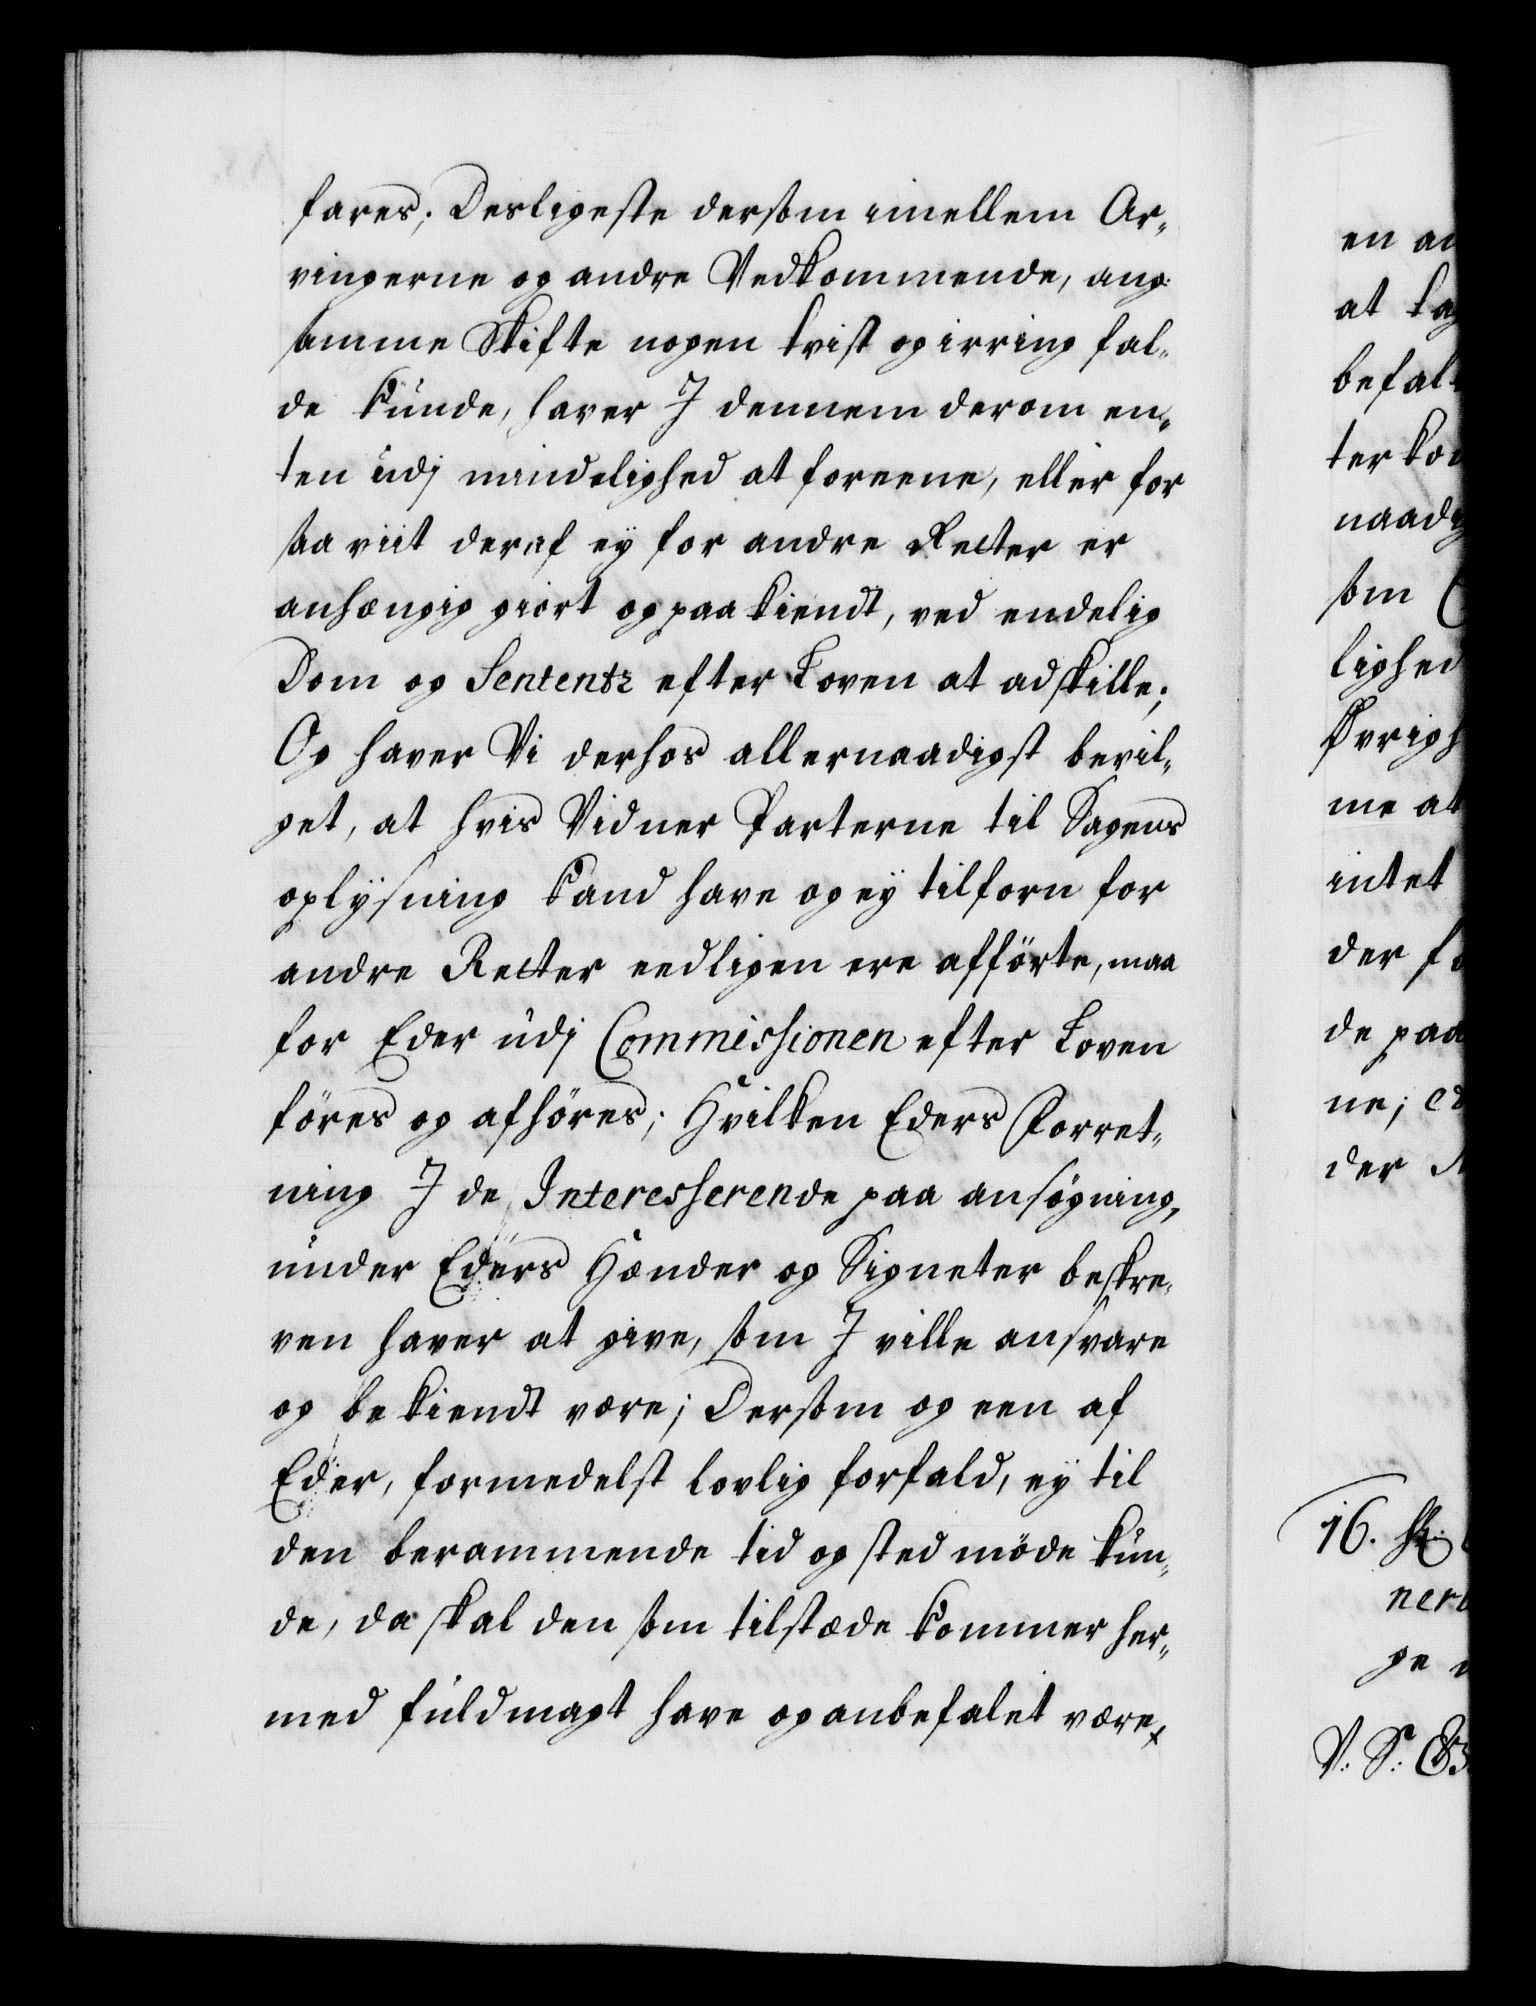 fares; Desligeste dersom imellem Ar„
vingerne og andre Vedkommende, ang:
samme Skifte nogen tvist og irring fal„
de kunde, haver I dennem derom en„
ten udj mindelighed at foreene, eller for
saa viit deraf ey for andre Retter er
anhængig giort og paakiendt, ved endelig
Dom og Sententz efter Loven at adskille;
Og haver Vi derhos allernaadigst bevil„
get, at hvis Vidner Parterne til Sagens
oplysning kand have og ey tilforn for
andre Retter eedligen ere afförte, maa
for Eder udj Commissionen efter Loven
föres og afhöres; Hvilken Eders Forret„
ning I de Interesserende paa ansögning,
under Eders Hænder og Signeter beskre„
ven haver at give, som I ville ansvare
og bekiendt være; Dersom og een af
Eder, formedelst lovlig forfald, ey til
den berammende tid og sted möde kun„
de, da skal den som tilstæde kommer her„
med fuldmagt have og anbefalet være
en
at
befal
ter
naad
som
lighed
Øvrigh
me at
intet
der
de paa
ne;
der
16.
ner
ge
V. S: